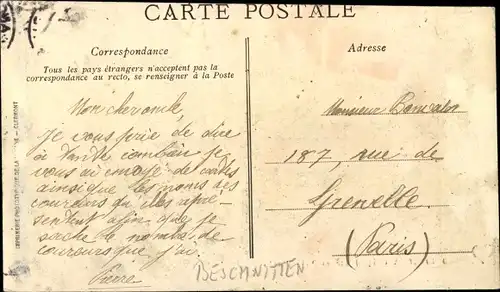 CARTE POSTALE
Correspondance
Tous les pays étrangers n'acceptent pas la
correspondance au recto, se renseigner à la Poste
Mon cher oncle,
Je vous prie de dire
à Tante combien je
vous ai envoyé de cartes
ainsi que les noms des
coureurs qu'elles repré-
sentent afin que je
sache le nombre de
coureurs que j'ai.
Pierre
Adresse
Monsieur
187, rue de
Grenelle
(Paris)
BESCHNITTEN